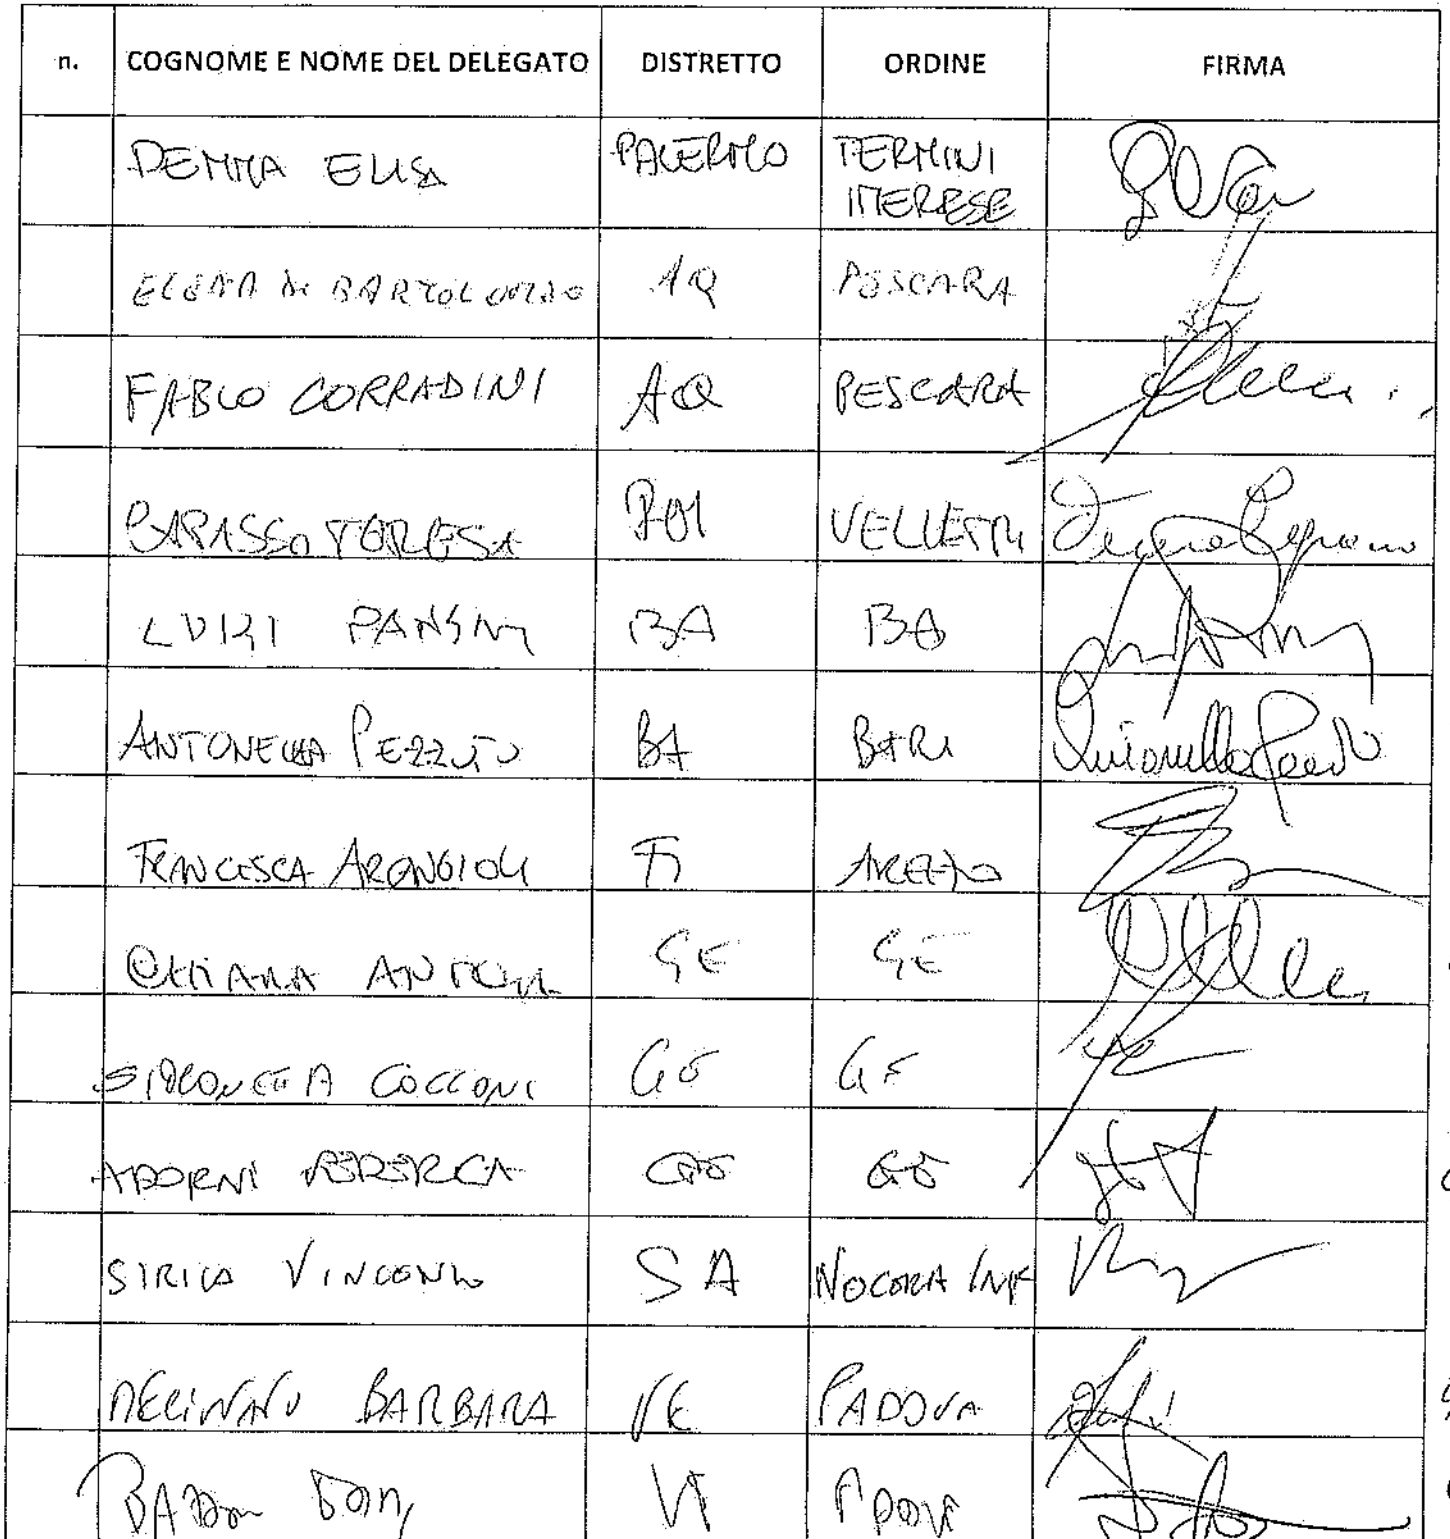 n. COGNOME E NOME DEL DELEGATO DISTRETTO ORDINE FIRMA
DEMMA ELISA PALERMO TERMINI
IMERESE
ELENA DI BARTOLOMEO AQ PESCARA
FABIO CORRADINI AQ PESCARA
TERESA ROM VELLETRI Teresa
LUIGI PANSINI BA BA
ANTONELLA PEZZUTO BA BARI Antonella Pezzuto
FRANCESCA ARONGIOLI FI AREZZO
CHIARA ANTONI GE GE
SIMONETTA COCCONI GE GE
ADORNI FEDERICA GE GE
SIRICA VINCENZO SA NOCERA INF
BARBARA VE PADOVA